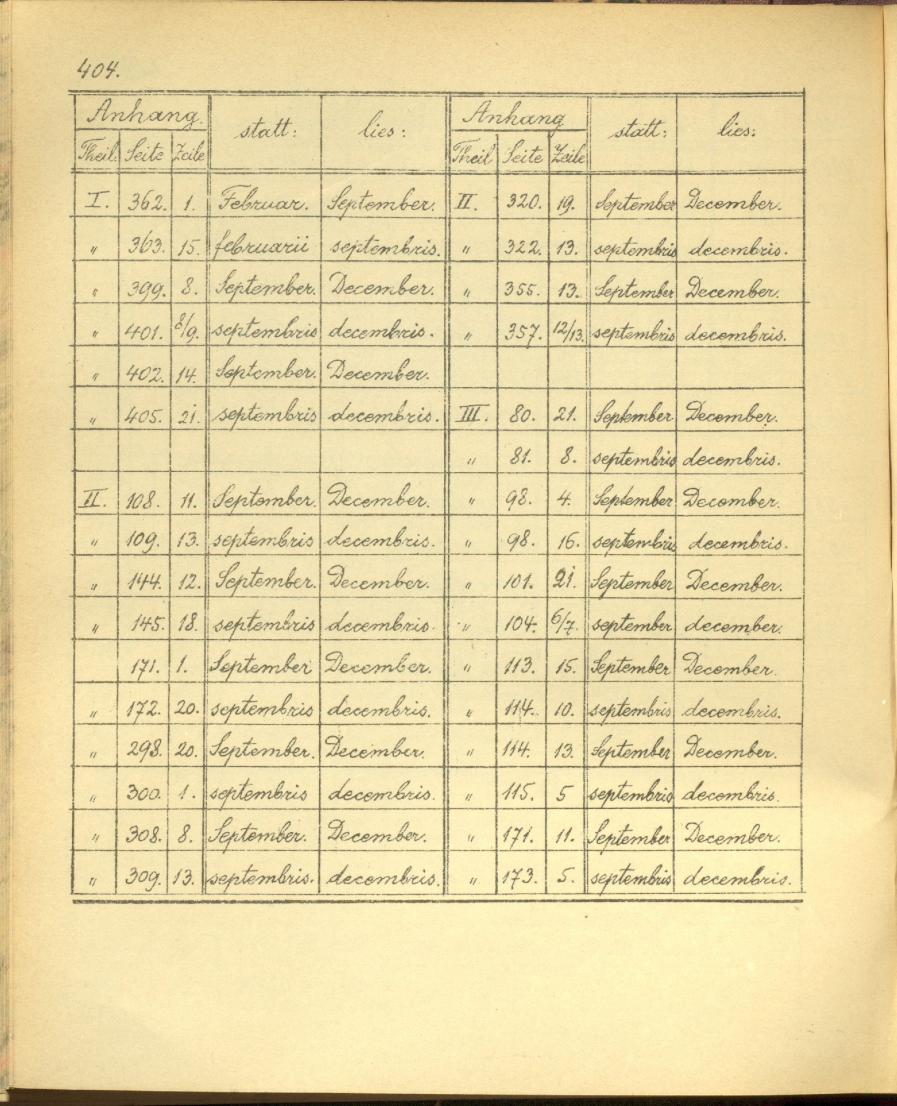 404.
Anhang. statt: lies: Anhang statt: lies:
Theil. Seite Zeile Theil Seite Zeile
I. 362. 1. Februar. September. II. 320. 19. September December.
" 363. 15. februarii septembris. " 322. 13. septembris decembris.
" 399. 8. September. December. " 355. 13. September December.
" 401. 8/9. septembris decembris. " 357. 12/13. septembris decembris.
" 402. 14. September. December.
" 405. 21. septembris decembris. III. 80. 21. September December.
" 81. 8. septembris decembris.
II. 108. 11. September. December. " 98. 4. September December.
" 109. 13. septembris decembris. " 98. 16. septembris decembris.
" 144. 12. September. December. " 101. 21. September December.
" 145. 18. septembris decembris. " 104. 6/7. september december.
171. 1. September December. " 113. 15. September December.
" 172. 20. septembris decembris. " 114. 10. septembris decembris.
" 298. 20. September. December. " 114. 13. September December.
" 300. 1. septembris decembris. " 115. 5 septembris decembris.
" 308. 8. September. December. " 171. 11. September December.
" 309. 13. septembris. decembris. " 173. 5. septembris decembris.